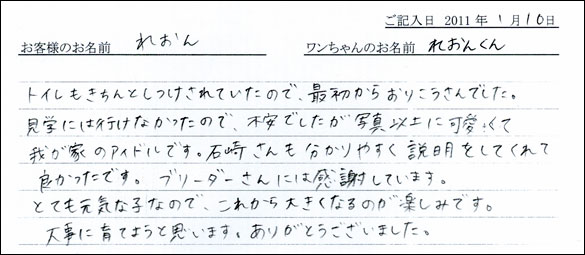 ご記入日 2011年 1月 10日
お客様のお名前 れおん ワンちゃんのお名前 れおんくん
トイレもきちんとしつけされていたので、最初からおりこうさんでした。
見学には行けなかったので、不安でしたが写真以上に可愛くて
我が家のアイドルです。石崎さんも分かりやすく説明をしてくれて
良かったです。ブリーダーさんには感謝しています。
とても元気な子なので、これから大きくなるのが楽しみです。
大事に育てようと思います。ありがとうございました。